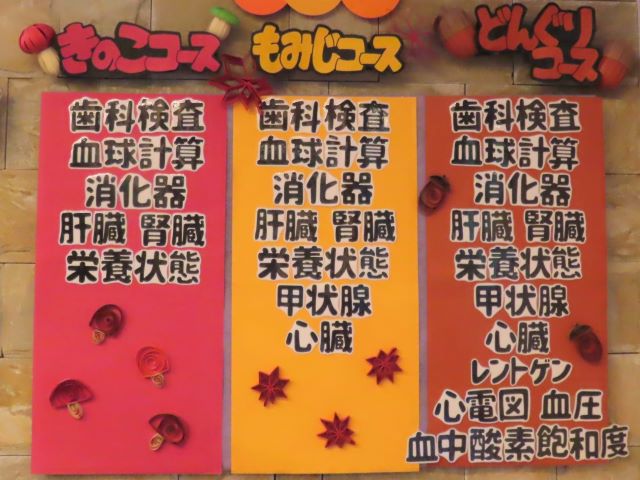 きのこコース
歯科検査
血球計算
消化器
肝臓 腎臓
栄養状態
もみじコース
歯科検査
血球計算
消化器
肝臓 腎臓
栄養状態
甲状腺
心臓
どんぐり
コース
歯科検査
血球計算
消化器
肝臓 腎臓
栄養状態
甲状腺
心臓
レントゲン
心電図 血圧
血中酸素飽和度